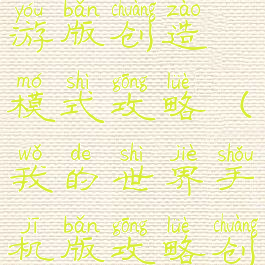 yóu bǎn chuàng zào
游版创造
mó shì gōng lüè
模式攻略（
wǒ de shì jiè shǒu
我的世界手
jī bǎn gōng lüè chuàng
机版攻略创